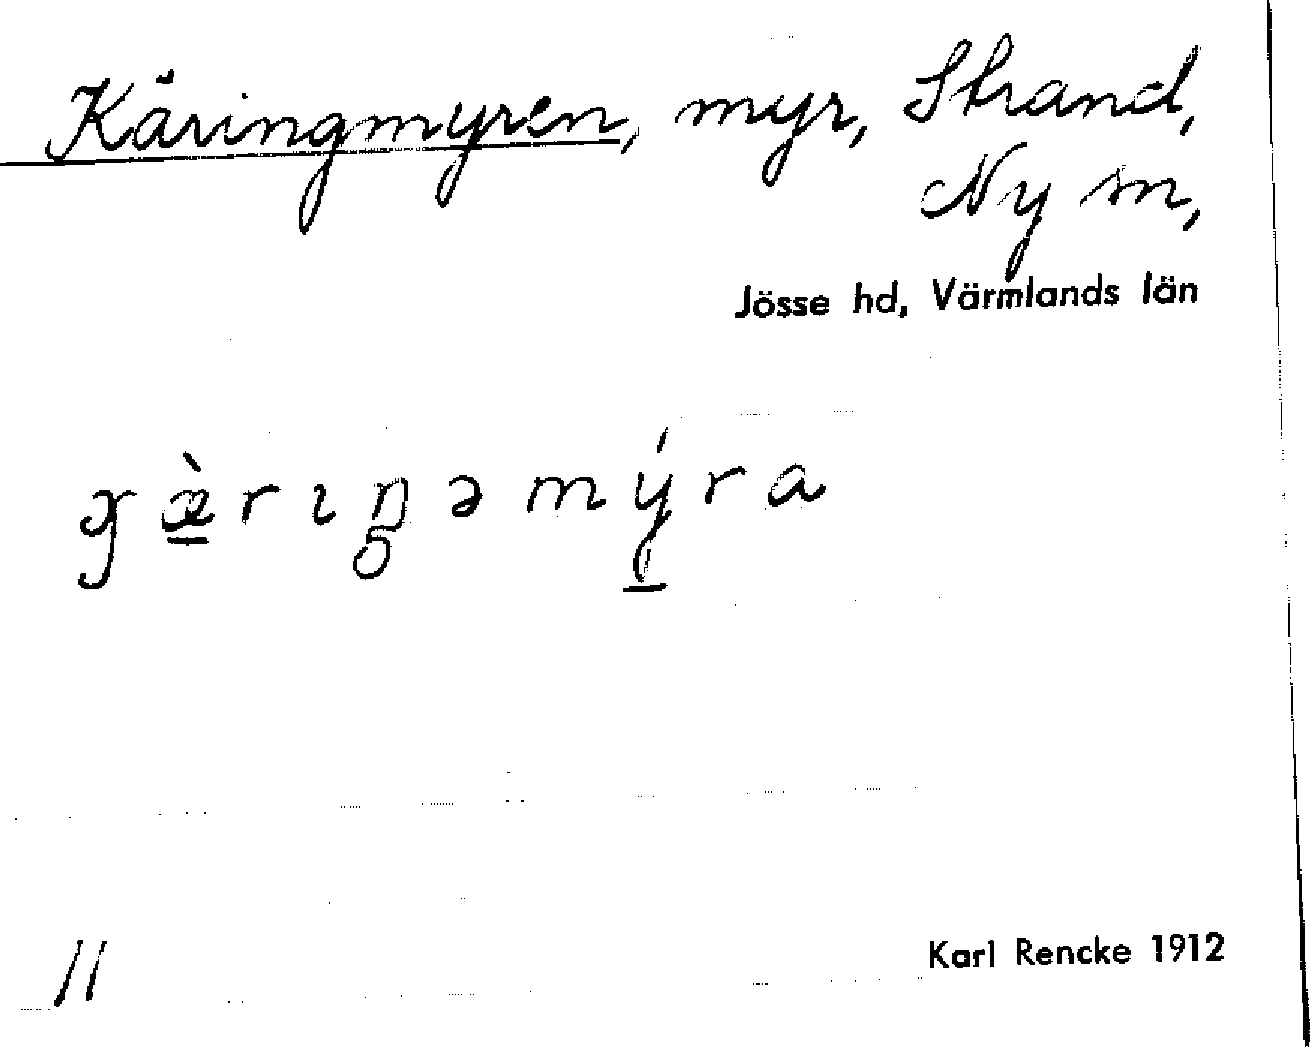 Käringmyren, myr, Strand,
Ny sn,
Jösse hd, Värmlands län
11
Karl Rencke 1912